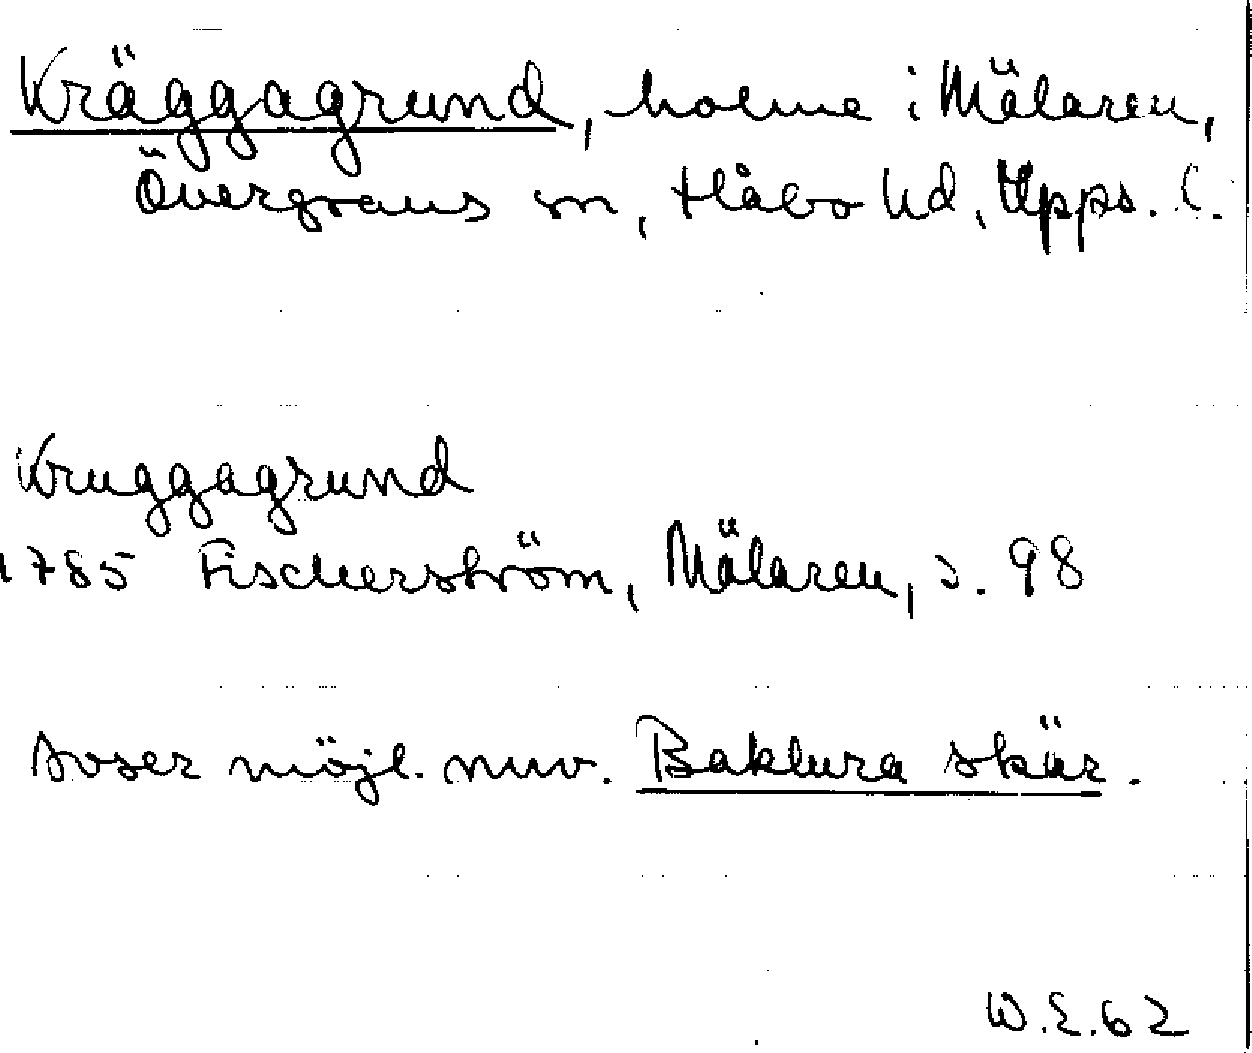 Kräggagrund, holme i Mälaren,
Övergrans sn, Håbo hd, Upps. l.
Kruggagrund
1785 Fischerström, Mälaren, s. 98
avser möjl. nuv. Baklura skär.
W.E.62